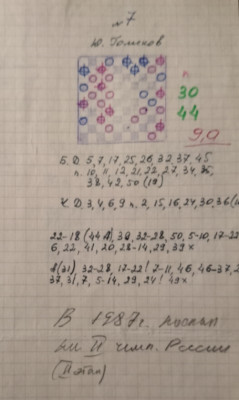 №7
Ю. Голиков
п.
30
44
9,0
Б. Д 5, 7, 17, 25, 26, 32, 37, 45
п. 10, 11, 12, 21, 22, 27, 34, 35,
38, 42, 50 (19)
Ч. Д 3, 4, 6, 9 п. 2, 15, 16, 24, 30, 36 (10
22-18 (44A), 39, 32-28, 50, 5-10, 17-22
6, 22, 41, 20, 28-14, 29, 39x
A(31), 32-28, 17-22! 7-11, 46, 46-37, 2
37, 31, 7, 5-14, 29, 24! 49x
В 1987г.
II чемп. России
(II этап)